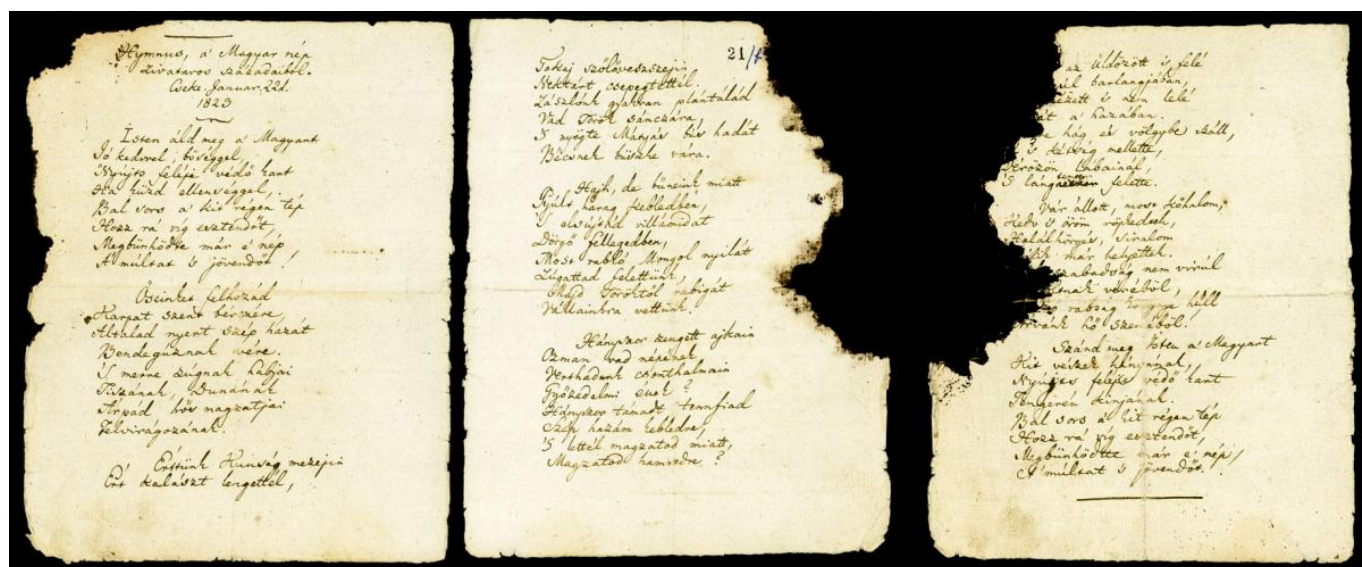 Hymnus, a' Magyar nép
zivataros századaiból.
Cseke. Januar. 22d.
1823
Isten áld meg a' Magyart
Jó kedvvel, bőséggel,
Nyújts feléje védő kart
Ha küzd ellenséggel,
Bal sors a' kit régen tép
Hozz rá víg esztendőt,
Megbünhödte már e' nép
A' múltat 's jövendőt!
Őseinket felhozád
Kárpát szent bérczére,
Általad nyert szép hazát
Bendegúznak vére.
'S merre zúgnak habjai
Tiszának, Dunának
Árpád hős magzatjai
Felvirágozának.
Értünk Kunság mezejin
Ért kalászt lengettél,
21/f
Tokaj szőlővesszein
Nektárt csepegtettél.
Zászlónk gyakran plántálád
Vad Török sánczára,
'S nyögte Mátyás bús hadát
Bécsnek büszke vára.
Hajh, de bűneink miatt
Gyúlt harag kebledben,
'S elsújtád villámidat
Dörgő fellegedben,
Most rabló Mongol nyilát
Zúgattad felettünk,
Majd Töröktől rabigát
Vállainkra vettünk.
Hányszor zengett ajkain
Ozman vad népének
Vert hadunk csonthalmain
Győzedelmi ének?
Hányszor támadt tennfiad
Szép hazám kebledre,
'S lettél magzatod miatt,
Magzatod hamvedre?
az üldözött 's felé
barlangjában,
's nem lelé
a' hazában.
hág és völgybe száll,
's kétség mellette,
Vérözön lábainál,
'S lángtenger felette.
Vár állott, most kőhalom,
Kedv 's öröm röpkedtek,
Halálhörgés, siralom
már helyettek.
szabadság nem virúl
véréből,
rabság könnye hűll
hő szeméből.
Szánd meg Isten a' Magyart
Kit vészek hányának,
Nyújts feléje védő kart
Tengerén kínjának.
Bal sors a' kit régen tép
Hozz rá víg esztendőt,
Megbünhödte már e' nép,
A' múltat 's jövendőt!